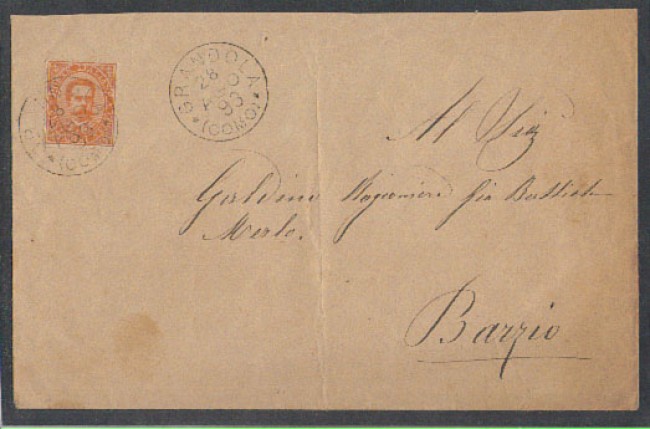 GRANDOLA
28
93
(COMO)
(COMO)
Al Sig
Galdino Ragioniere Gio Battista
Merlo.
Barzio